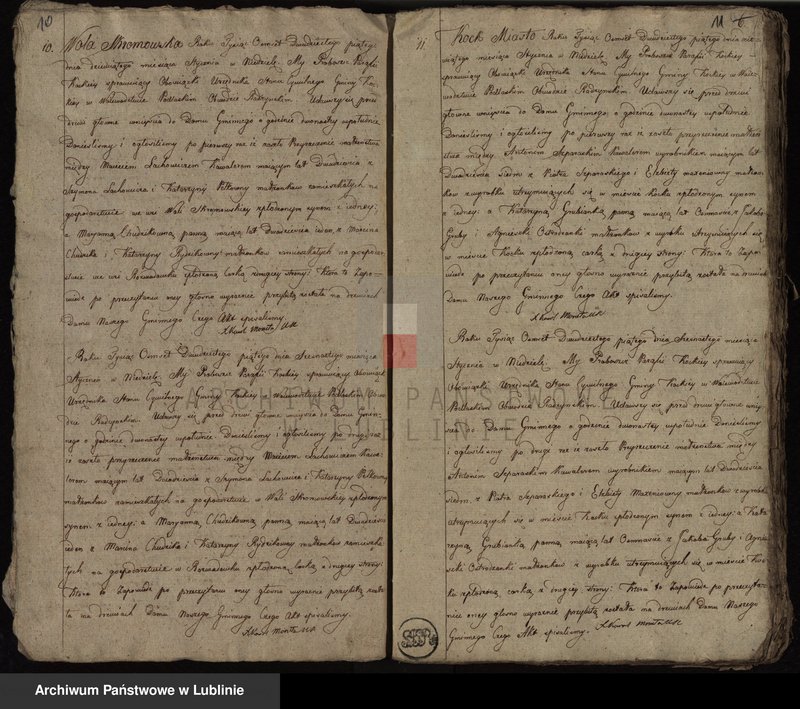 10
10. Wola Skromowska Roku Tysiąc Osmset Dwudziestego piątego
dnia dziewiątego miesiąca Stycznia w Niedzielę. My Proboszcz Parafii
Kockiey sprawuiący Obowiązki Urzędnika Stanu Cywilnego Gminy Koc-
kiey w Woiewodztwie Podlaskim Obwodzie Radzynskim. Udawszy się przed
drzwi głowne wniyscia do Domu Gminnego o godzinie dwunastey wpołudnie
Donieslismy i ogłosilismy po pierwszy raz iż zaszło Przyrzeczenie małżenstwa
między Woyciechem Lachowiczem Kawalerem maiącym lat Dwadziescia z
Szymona Lachowicza i Katarzyny małżonkow zamieszkałych na
gospodarstwie we wsi Woli Skromowskiey spłodzonym synem z iedney:
a Maryanną Chudzikowną panną maiącą lat Dwadziescia ieden, z Marcina
Chudzika i Katarzyny małżonkow zamieszkałych na gospodar-
stwie we wsi spłodzoną corką zdrugiey strony: Ktora to Zapo-
wiedz po przeczytaniu oney głosno wyraznie przybitą została na drzwiach
Domu Naszego Gminnego Czego Akt spisalismy.
X Karol Monita USC
Roku Tysiąc Osmset Dwudziestego piątego dnia Szesnastego miesiąca
Stycznia w Niedzielę, My Proboszcz Parafii Kockiey sprawuiący Obowiązki
Urzędnika Stanu Cywilnego Gminy Kockiey w Woiewodztwie Podlaskim Obwo-
dzie Radzynskim. Udawszy się przed drzwi głowne wniyscia do Domu Gmin-
nego o godzinie dwunastey wpołudnie Donieslismy i ogłosilismy po drugi raz
iż zaszło przyrzeczenie małżenstwa między Woyciechem Lachowiczem Kawa-
lerem maiącym lat Dwadziescia z Szymona Lachowicza i Katarzyny
małżonkow zamieszkałych na gospodarstwie w Woli Skromowskiey spłodzonym
synem z iedney: a Maryanną Chudzikowną panną maiącą lat Dwadziescia
ieden z Marcina Chudzika i Katarzyny małżonkow zamieszka-
łych na gospodarstwie w spłodzoną corką z drugiey strony:
Ktora to Zapowiedz po przeczytaniu oney głosno wyraznie przybitą zosta-
ła na drzwiach Domu Naszego Gminnego Czego Akt spisalismy
X Karol Monita USC
11 6
11. Kock Miasto Roku Tysiąc Osmset Dwudziestego piątego dnia dzie-
wiątego miesiąca Stycznia w Niedzielę. My Proboszcz Parafii Kockiey
sprawuiący Obowiązki Urzędnika Stanu Cywilnego Gminy Kockiey w Woie-
wodztwie Podlaskim Obwodzie Radzynskim. Udawszy się przed drzwi
głowne wniyscia do Domu Gminnego o godzinie dwunastey wpołudnie
Donieslismy i ogłosilismy po pierwszy raz iż zaszło przyrzeczenie małżen-
stwa między Antonim Separaskim Kawalerem wyrobnikiem maiącym lat
Dwadziescia siedm z Piotra Separaskiego i Elzbiety małżon-
kow z wyrobku utrzymuiących się w miescie Kocku spłodzonym synem
z iedney: a Katarzyną Grubianką panną maiącą lat Osmnascie, z Jakuba
Gruby i Agnieszki małżonkow z wyrobku utrzymuiących się
w miescie Kocku spłodzoną corką z drugiey strony: Ktora to Zapo-
wiedz po przeczytaniu oney głosno wyraznie przybitą została na drzwiach
Domu Naszego Gminnego Czego Akt spisalismy.
X Karol Monita USC
Roku Tysiąc Osmset Dwudziestego piątego dnia Szesnastego miesiąca
Stycznia w Niedzielę: My Proboszcz Parafii Kockiey sprawuiący
Obowiązki Urzędnika Stanu Cywilnego Gminy Kockiey w Woiewodztwie
Podlaskim Obwodzie Radzynskim. Udawszy się przed drzwi głowne wniy-
scia do Domu Gminnego o godzinie dwunastey wpołudnie Donieslismy
i ogłosilismy po drugi raz iż zaszło Przyrzeczenie małżenstwa między
Antonim Separaskim Kawalerem wyrobnikiem maiącym lat Dwadziescia
siedm z Piotra Separaskiego i Elzbiety małżonkow z wyrobku
utrzymuiących się w miescie Kocku spłodzonym synem z iedney: a Kata-
rzyną Grubianką panną maiącą lat Osmnascie z Jakuba Gruby i Agnie-
szki małżonkow z wyrobku utrzymuiących się w miescie Koc-
ku spłodzoną corką z drugiey strony: Ktora to Zapowiedz po przeczyta-
niu oney głosno wyraznie przybitą została na drzwiach Domu Naszego
Gminnego Czego Akt spisalismy. X Karol Monita USC
ARCHIWUM PAŃSTWOWE
W LUBLINIE
Archiwum Państwowe w Lublinie